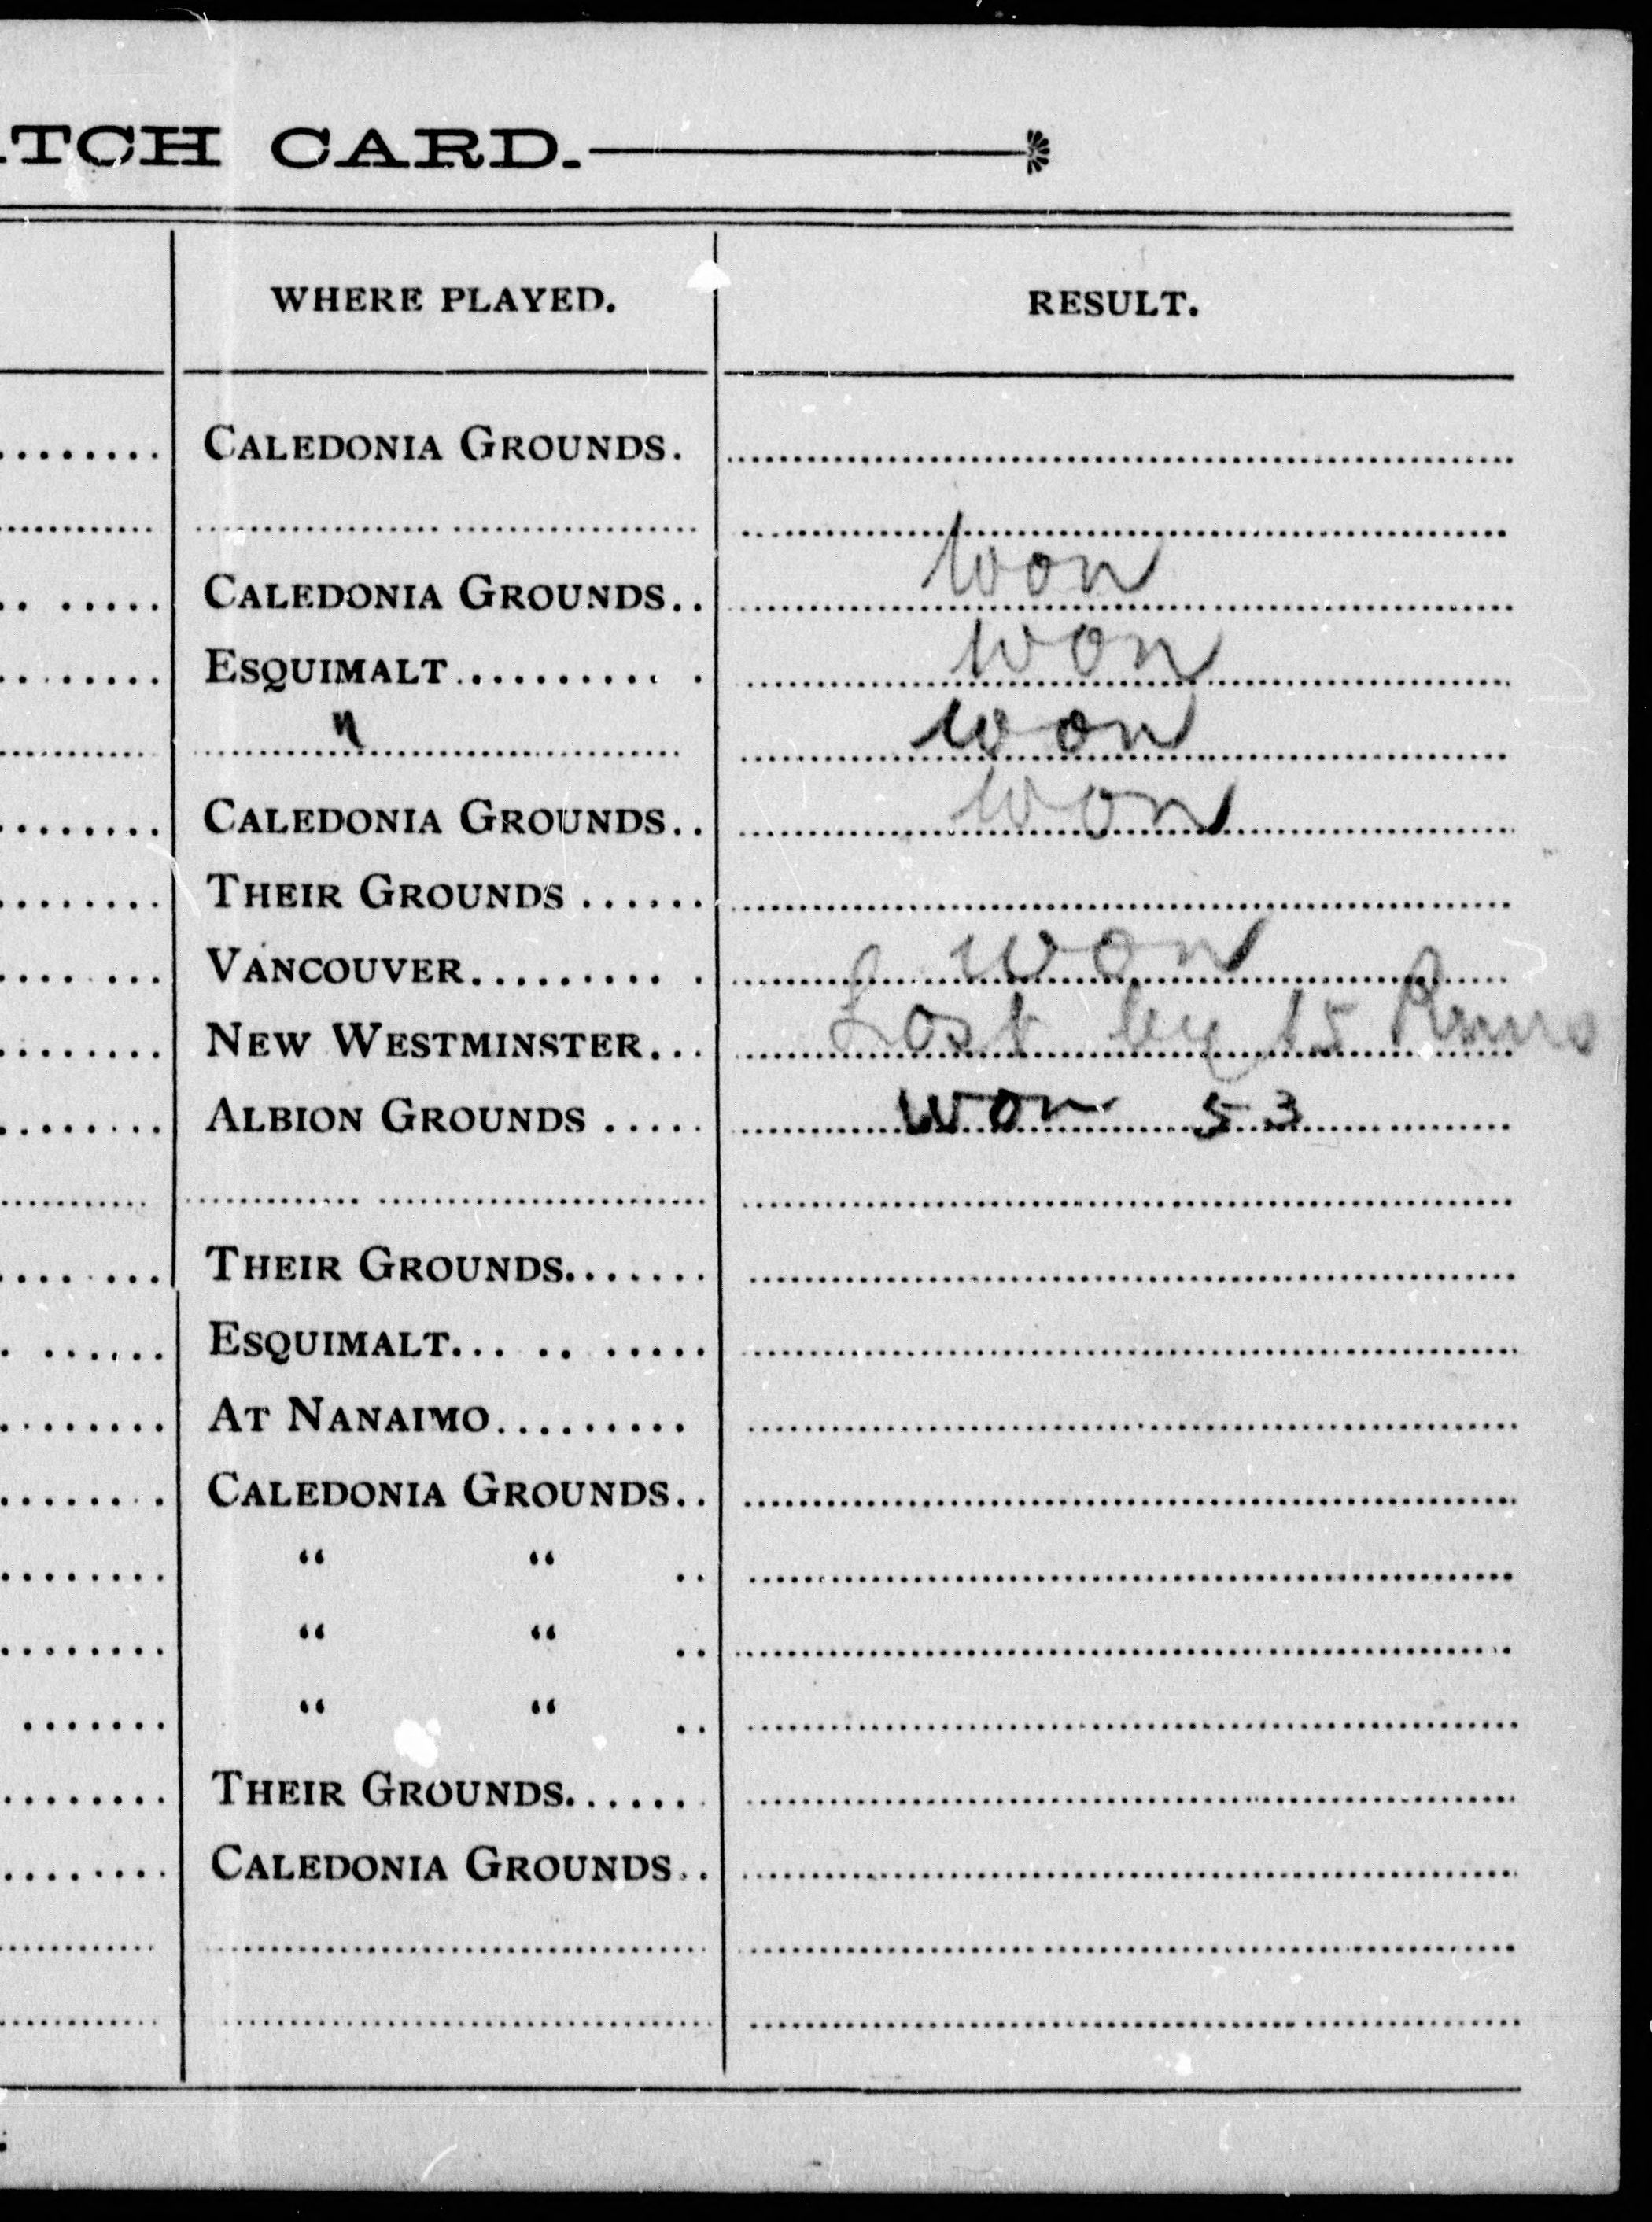 TCH CARD.
WHERE PLAYED. RESULT.
CALEDONIA GROUNDS.
CALEDONIA GROUNDS.. Won
ESQUIMALT.......... won
" won
CALEDONIA GROUNDS.. won
THEIR GROUNDS......
VANCOUVER.......... won
NEW WESTMINSTER... Lost by 15 Runs
ALBION GROUNDS..... won 53
THEIR GROUNDS.......
ESQUIMALT... .. .....
AT NANAIMO.........
CALEDONIA GROUNDS..
" " ..
" " ..
" " ..
THEIR GROUNDS.......
CALEDONIA GROUNDS..